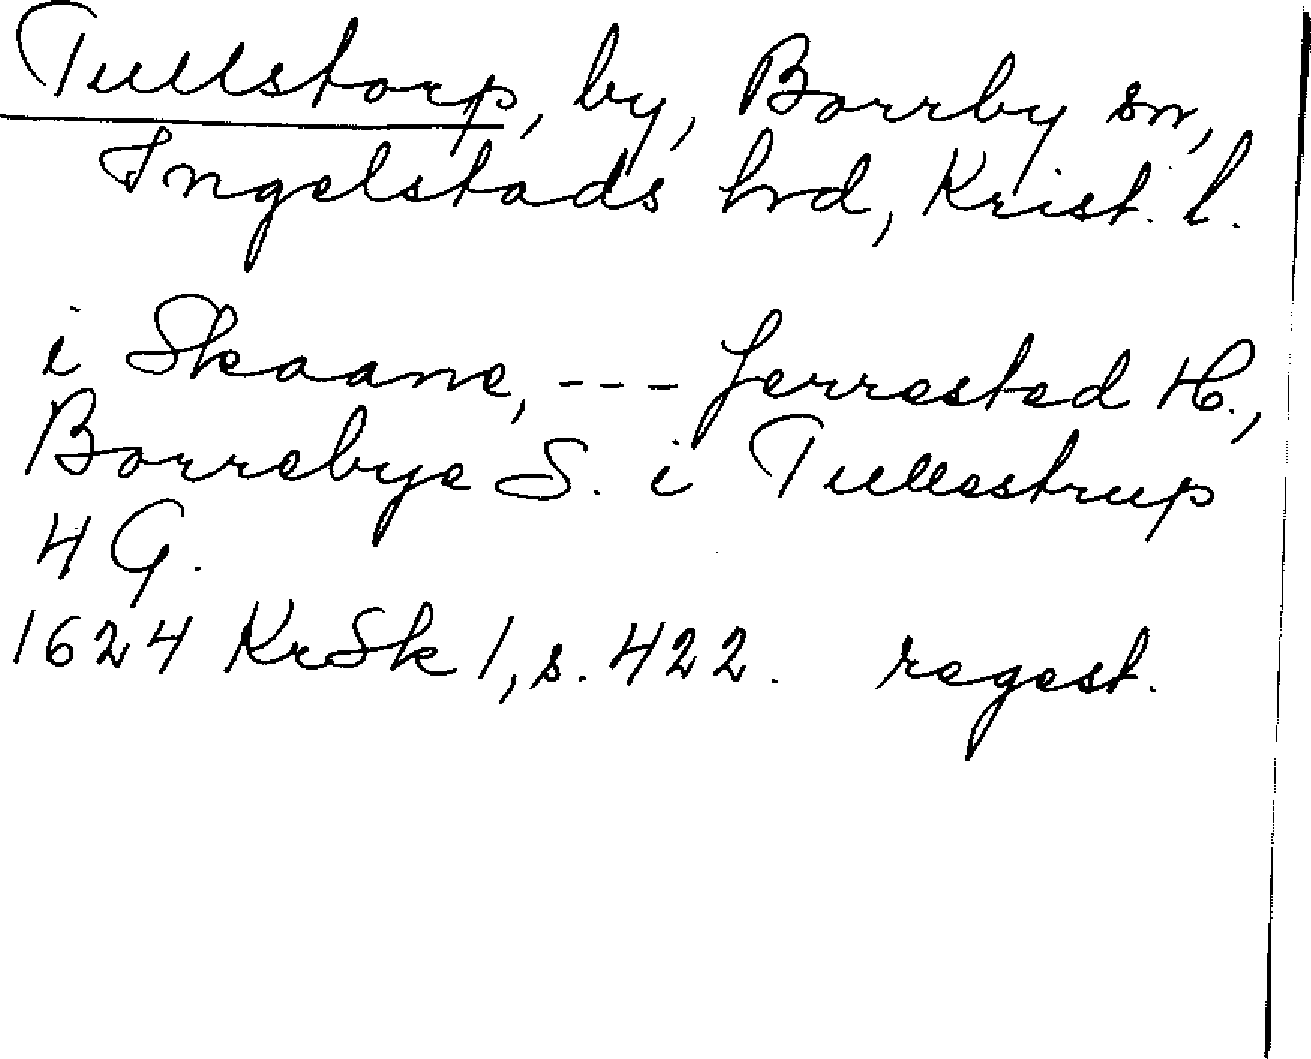 Tullstorp, by, Borrby sn,
Ingelstads hrd, Krist. l.
i Skaane, --- Jerrested H.,
Borrebye S. i Tullestrup
4 G.
1624 KrSk 1, s. 422. regest.